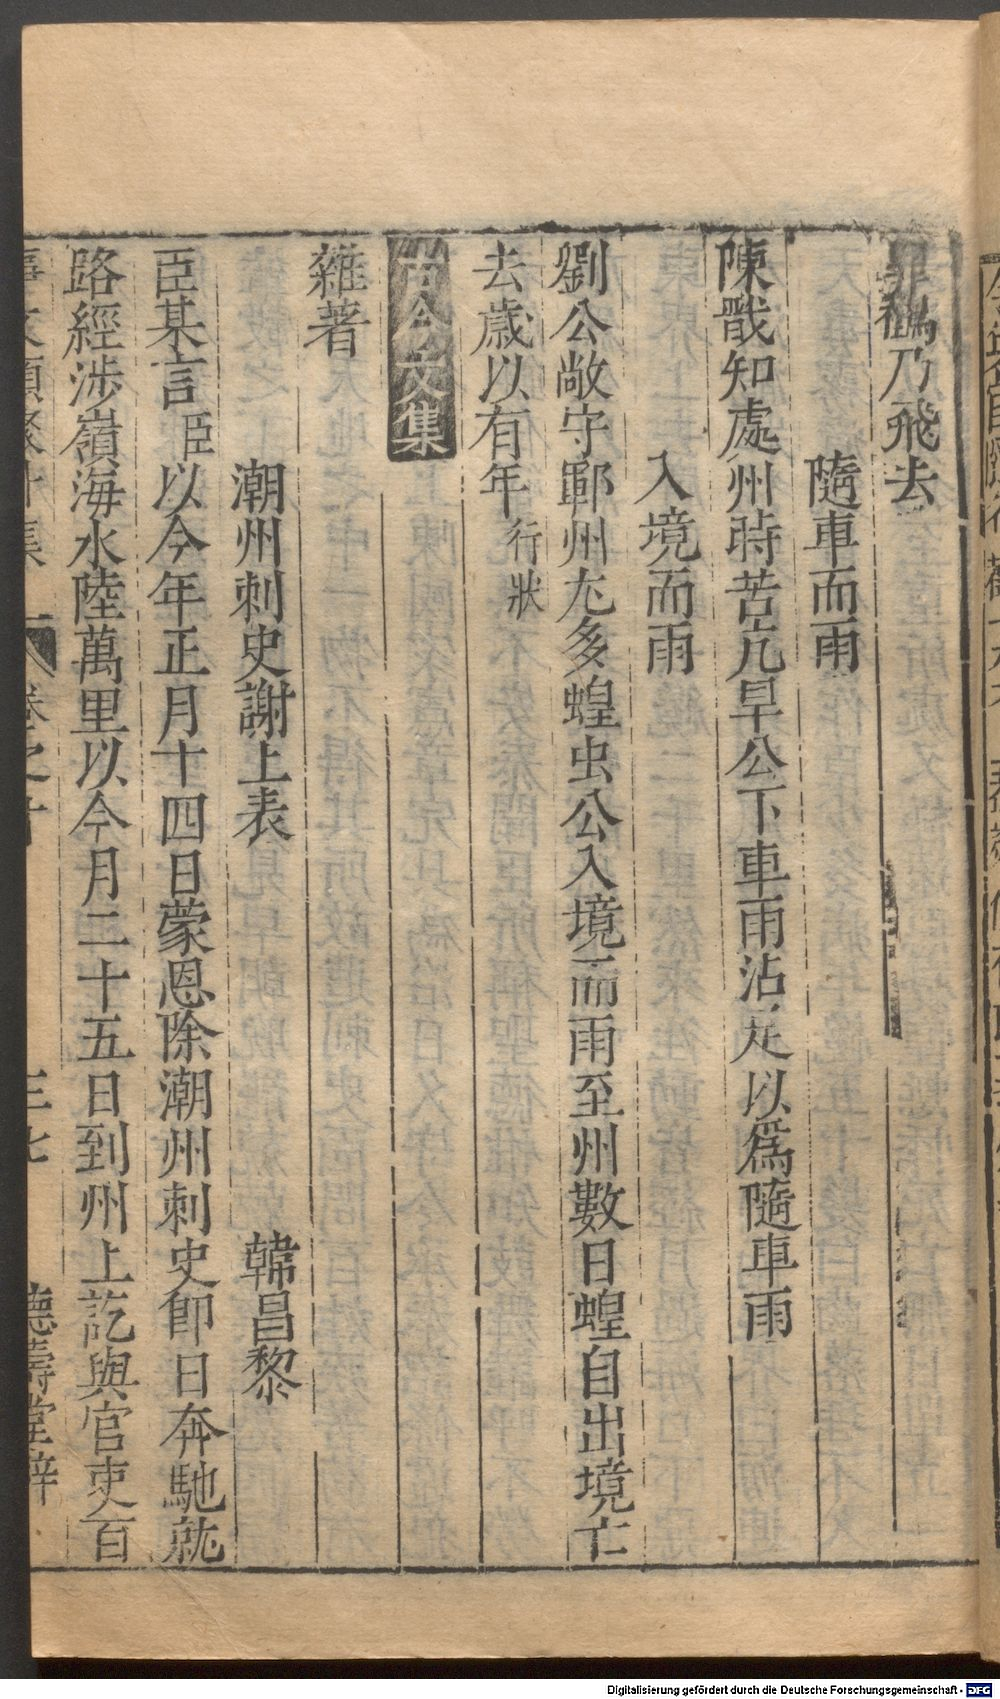 鶴乃飛去
隨車而雨
陳戩知處州時苦亢旱公下車雨沾足以爲隨車雨
入境而雨
劉公敞守鄆州尤多蝗虫公入境而雨至州數日蝗自出境亡
去歲以有年行狀
古今文集
雜著
潮州刺史謝上表 韓昌黎
臣某言臣以今年正月十四日蒙恩除潮州刺史卽日奔馳就
路經涉嶺海水陸萬里以今月二十五日到州上訖與官吏百
事文類聚 集 卷之十 三七 德壽堂梓
Digitalisierung gefördert durch die Deutsche Forschungsgemeinschaft - DFG